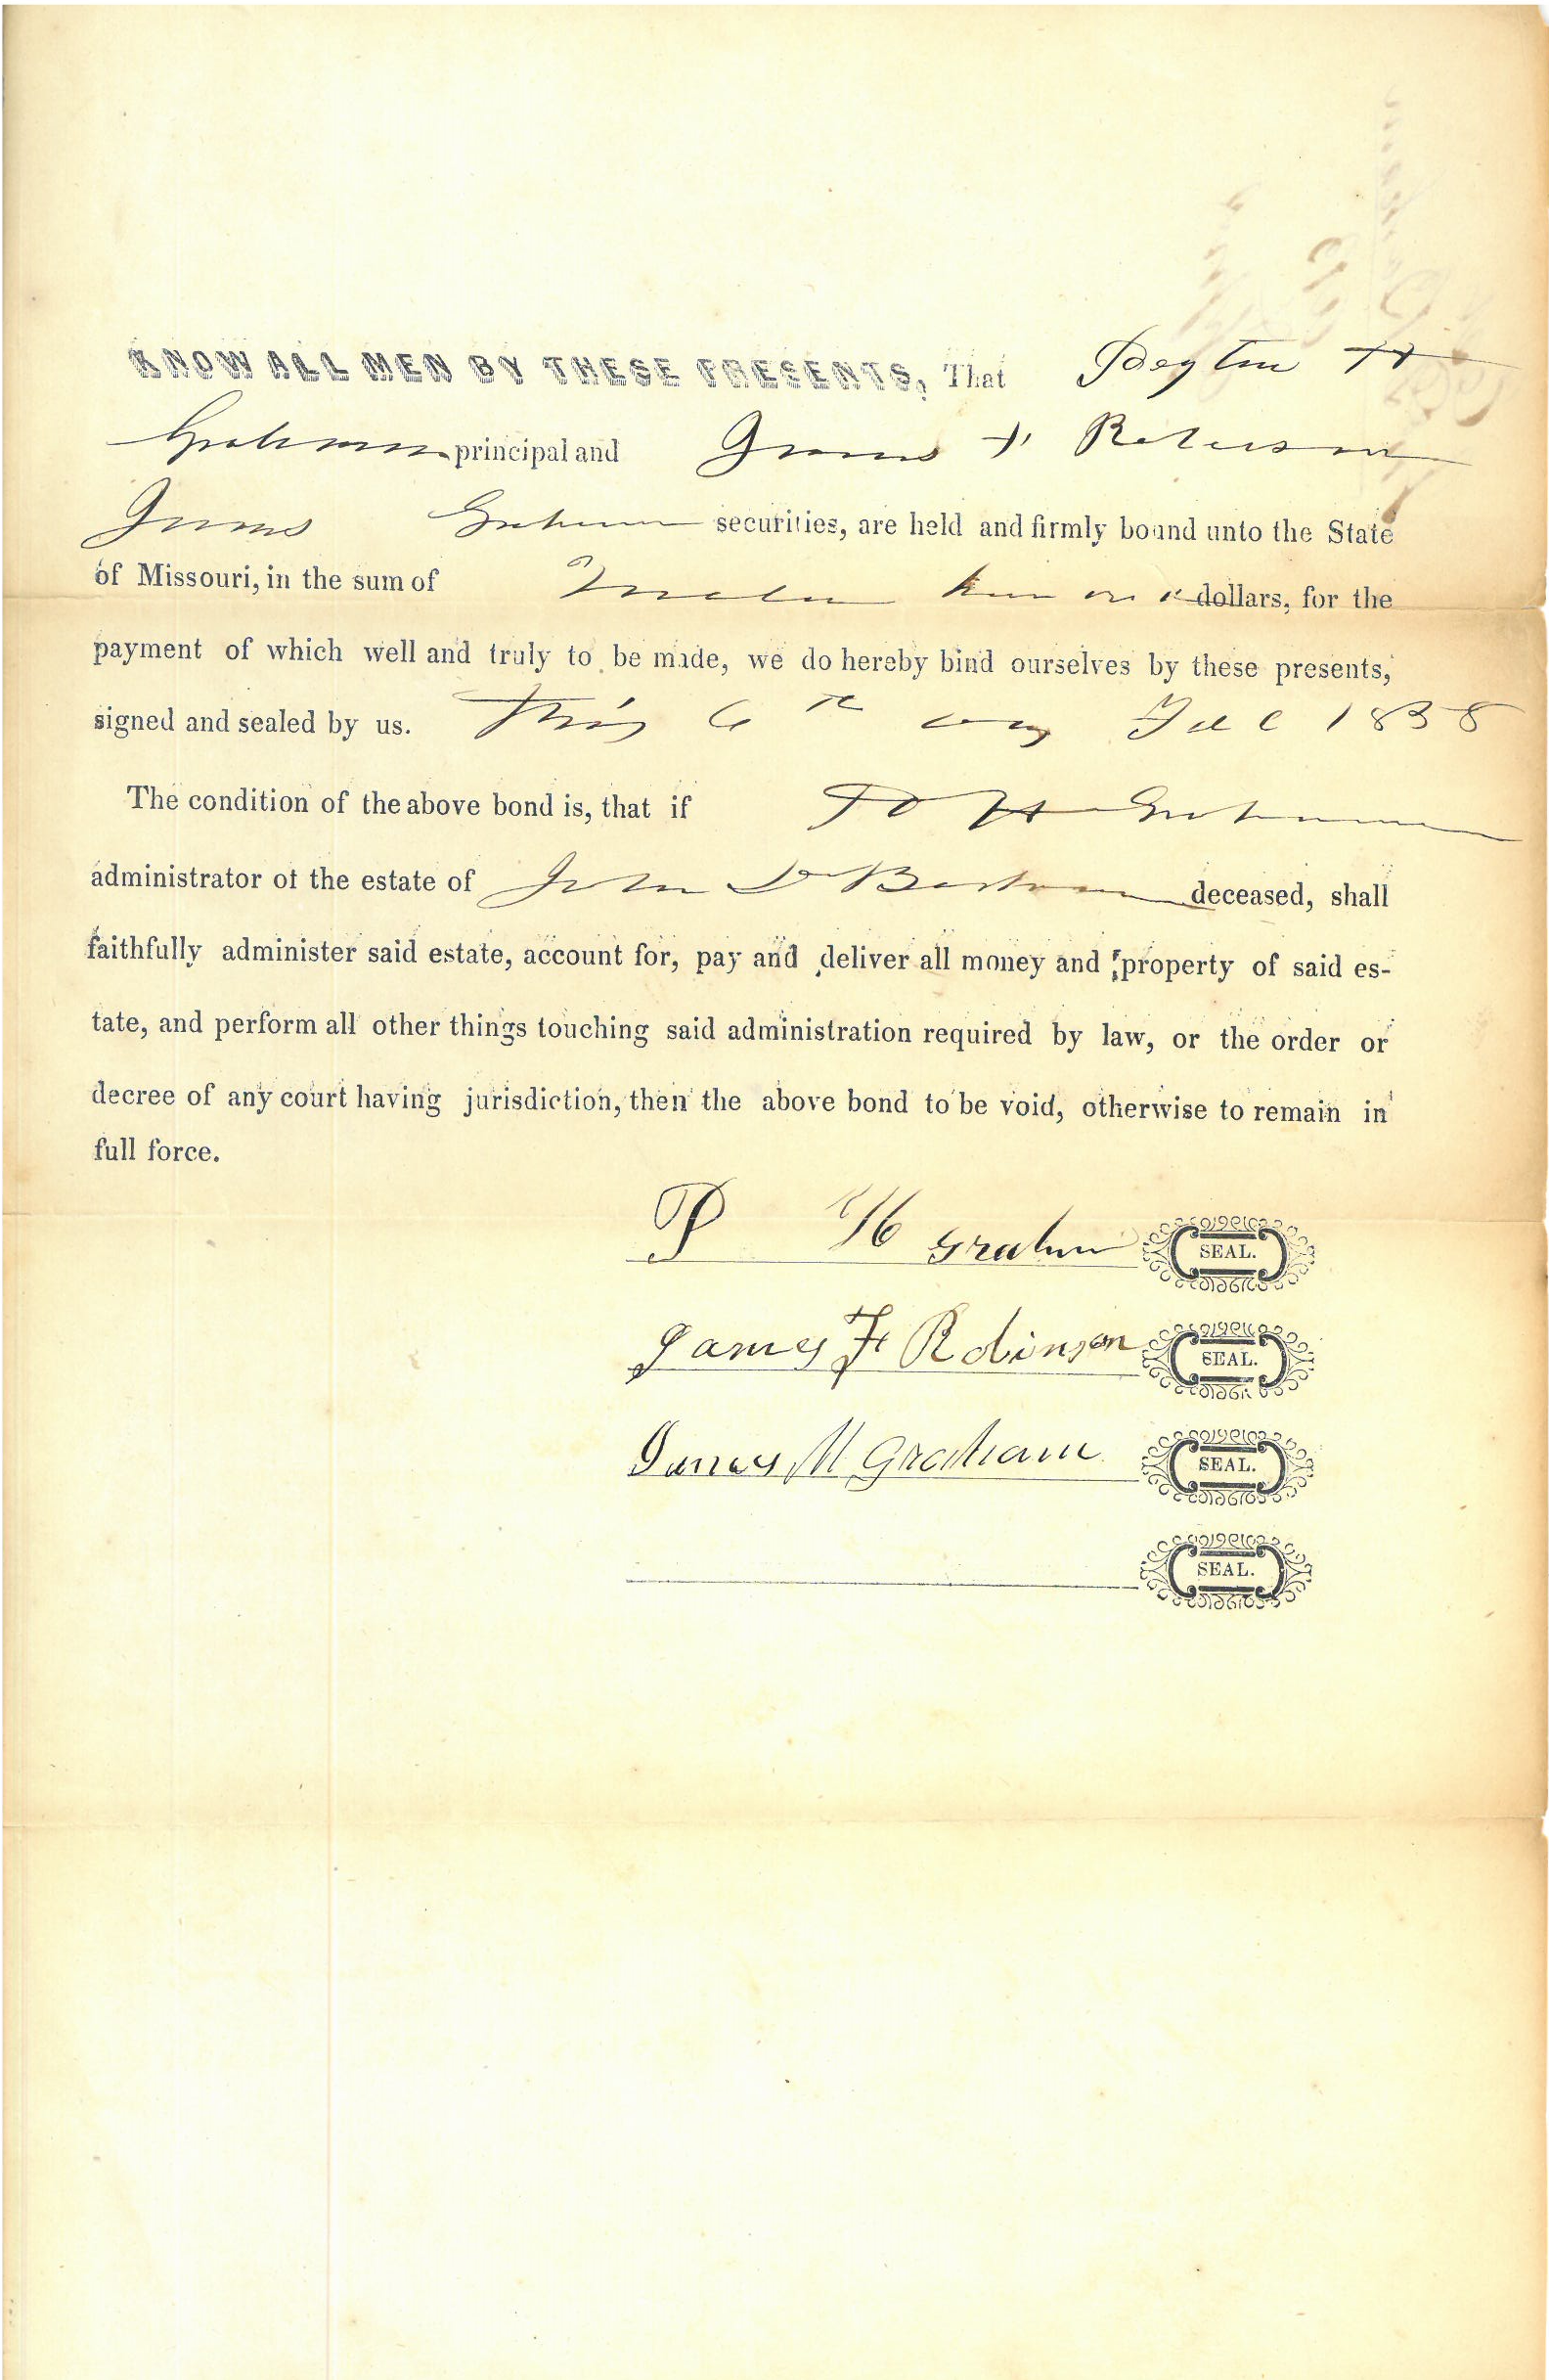 KNOW ALL MEN BY THESE PRESENTS, That Peyton H
Graham principal and James F Robinson
James Graham securities, are held and firmly bound unto the State
of Missouri, in the sum of dollars, for the
payment of which well and truly to be made, we do hereby bind ourselves by these presents,
signed and sealed by us. This 6th day 1858
The condition of the above bond is, that if P H Graham
administrator of the estate of John deceased, shall
faithfully administer said estate, account for, pay and deliver all money and property of said es-
tate, and perform all other things touching said administration required by law, or the order or
decree of any court having jurisdiction, then the above bond to be void, otherwise to remain in
full force.
P H Graham SEAL.
James F Robinson SEAL.
James M Graham SEAL.
SEAL.